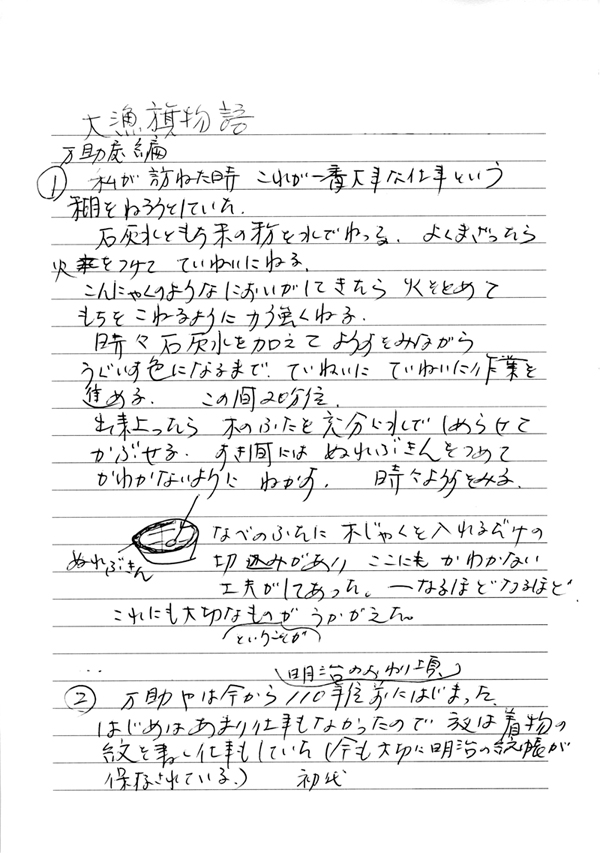 大漁旗物語
万助屋編
① 私が訪ねた時 これが一番大事な仕事という
糊をねろうとしていた.
石灰水ともち米の粉を水でわってる. よくまざったら
火をつけて ていねいにねる.
こんにゃくのようなにおいがしてきたら 火をとめて
もちをこねるように力強くねる.
時々石灰水を加えて ようすをみながら
うぐいす色になるまで. ていねいに ていねいに作業を
進める. この間20分位.
出来上ったら 木のふたを充分に水でしめらせて
かぶせる. すき間には ぬれぶきんをつめて
かわかないように ねかす. 時々ようすをみる.
ぬれぶきん
なべのふちに 木じゃくを入れるだけの
切込みがあり ここにもかわかない
工夫がしてあった。 ーなるほどなるほど
これにも大切なものがうかがえた。
ということが
(明治のおわり頃)
② 万助やは今から110年位前にはじまった.
はじめはあまり仕事もなかったので 夜は着物の
紋を 仕事もしていた (今も大切に明治の紋帳が
保存されている.) 初代